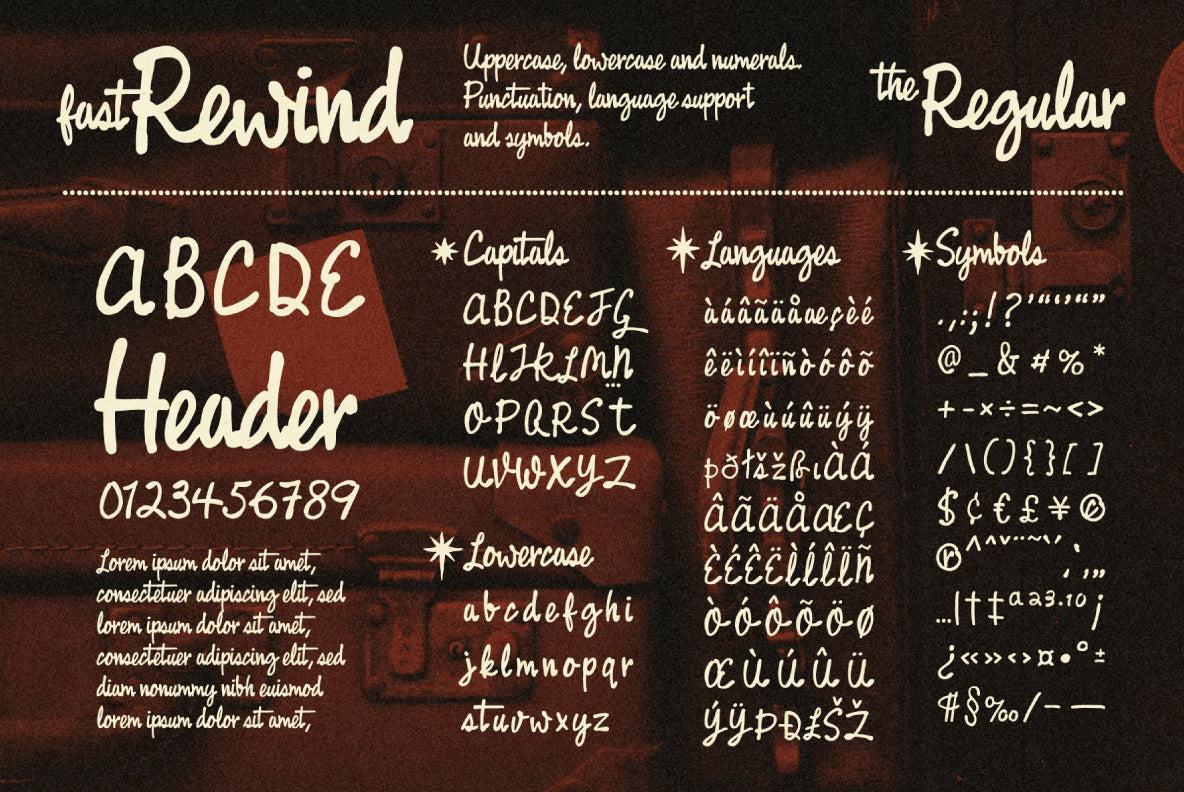 fast Rewind
Uppercase, lowercase and numerals.
Punctuation, language support
and symbols.
the Regular
ABCDE
Header
0123456789
Lorem ipsum dolor sit amet,
consectetuer adipiscing elit, sed
lorem ipsum dolor sit amet,
consectetuer adipiscing elit, sed
diam nonummy nibh euismod
lorem ipsum dolor sit amet,
Capitals
ABCDEFG
HIJKLMN
OPQRST
UVWXYZ
Lowercase
abcdefghi
jklmnopqr
stuvwxyz
Languages
àáâãäåæçèé
êëìíîïñòóôõ
öøœùúûüýÿ
þðłšžßıÀÁ
ÂÃÄÅÆÇ
ÈÉÊËÌÍÎÏÑ
ÒÓÔÕÖØ
ŒÙÚÛÜ
ÝŸÞÐŁŠŽ
Symbols
.,:;!?'"“‘’“”
@_&#%*
+-×÷=~<>
/\(){}[]
$¢€£¥©
®^ˆˇ¨¯˜˘‚„
…|†‡ª²³·¹º¡
¿«»‹›¤•°±
¶§‰⁄–—